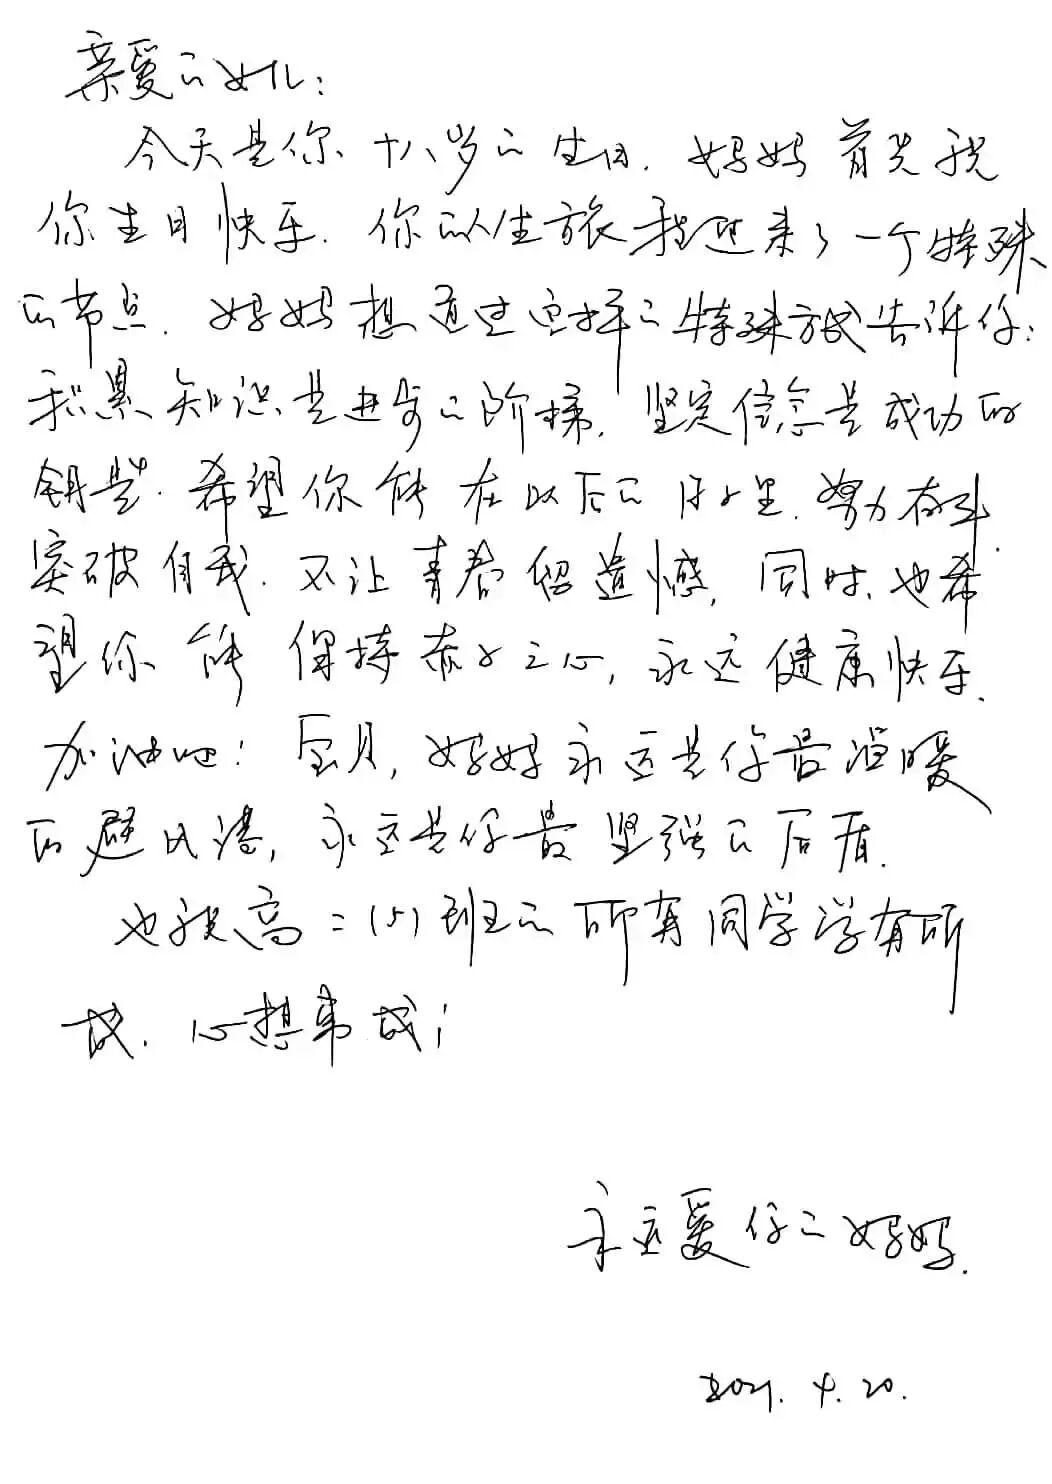 亲爱的女儿：
今天是你十八岁的生日．妈妈首先祝
你生日快乐．你的人生旅程迎来了一个特殊
的节点．妈妈想通过这样的特殊方式告诉你：
积累知识是进步的阶梯．坚定信念是成功的
钥匙．希望你能在以后的日子里．努力奋斗．
突破自我．不让青春留遗憾．同时．也希
望你能保持赤子之心，永远健康快乐．
加油吧！宝贝，妈妈永远是你最温暖
的避风港，永远是你最坚强的后盾．
也祝高二(5)班的所有同学学有所
成．心想事成！
永远爱你的妈妈．
2021.4.20.